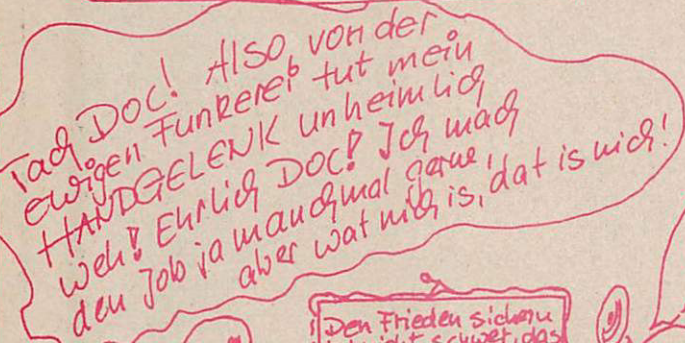 Tach DOC! Also, von der
ewigen Funkerei tut mein
HANDGELENK unheimlich
weh! Ehrlich DOC! Ich mach
den Job ja manchmal gerne,
aber wat nich is, dat is nich!
Den Frieden sichern
schwer, das